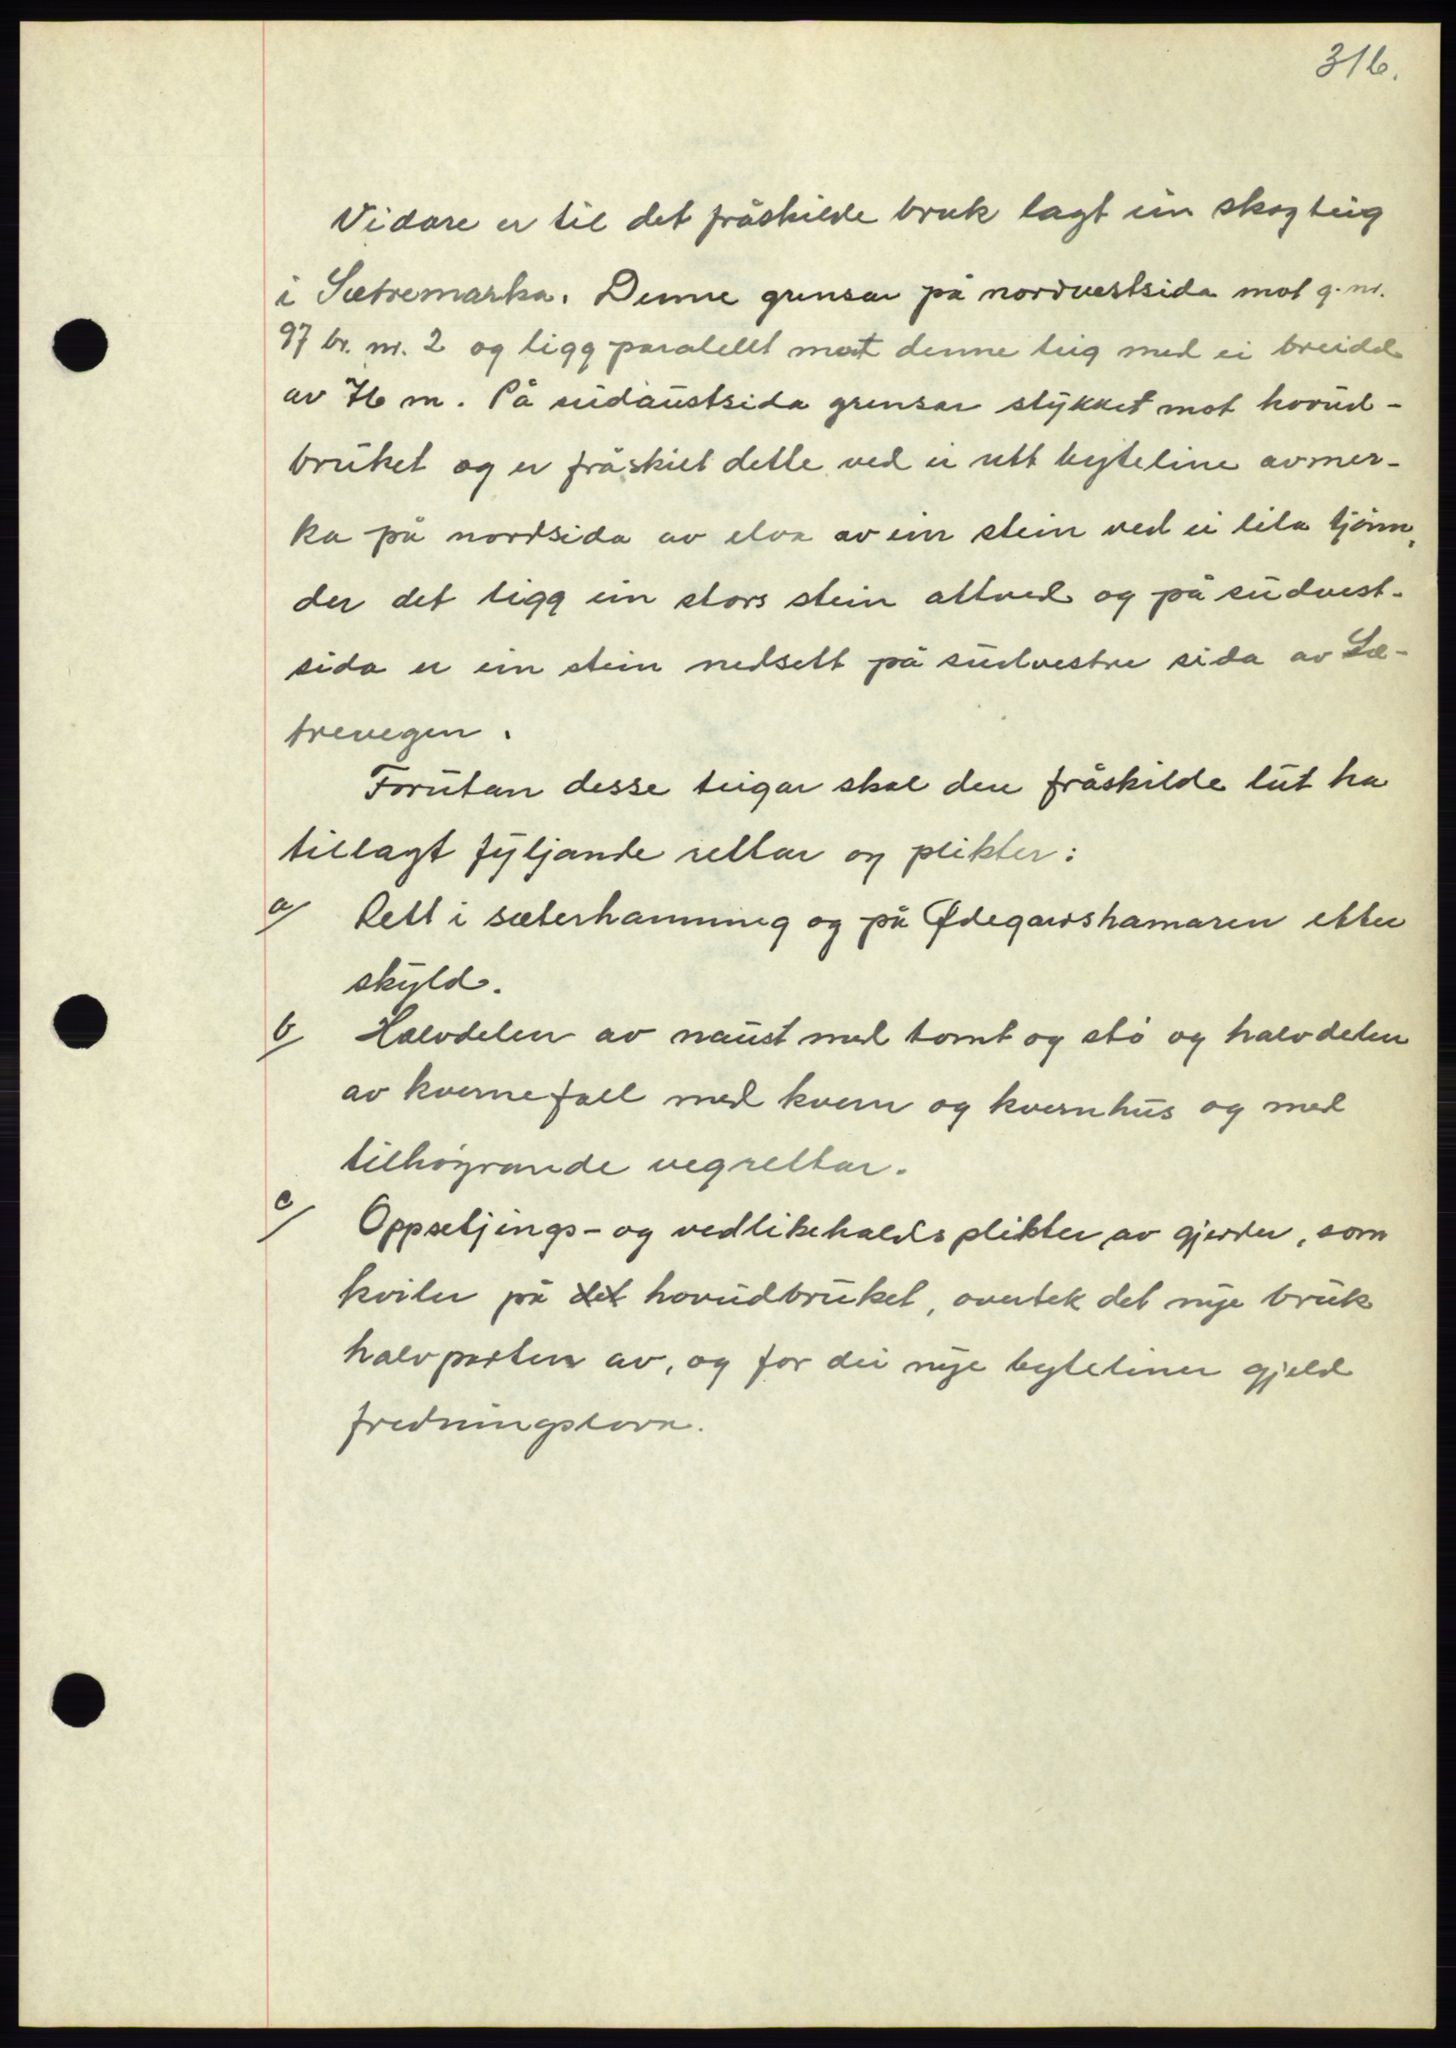 316.
Vidare er til det fråskilde bruk lagt ein skogteig
i Sætremarka. Denne grensar på nordvestsida mot g. nr.
97 br. nr. 2 og ligg paralellt mot denne teig med ei breidd
av 76 m. På sudaustsida grensar stykket mot hovud-
bruket og er fråskilt dette ved ei rett byteline avmer-
ka på nordsida av elva av ein stein ved ei lita tjönn,
der det ligg ein stors stein attved og på sudvest-
sida er ein stein nedsett på sudvestre sida av Sæ-
trevegen.
Forutan desse teigar skal den fråskilde lut ha
tillagt fyljande rettar og plikter:
a/ Rett i sæterhamning og på Ødegardshamaren etter
skyld.
b/ Halvdelen av naust med tomt og stö og halvdelen
av kvernefall med kvern og kvernhus og med
tilhöyrande vegrettar.
c/ Oppsetjings- og vedlikehalds plikter av gjerder, som
kviler på det hovudbruket, overtek det nye bruk
halvparten av, og for dei nye byteliner gjeld
fredningslova.